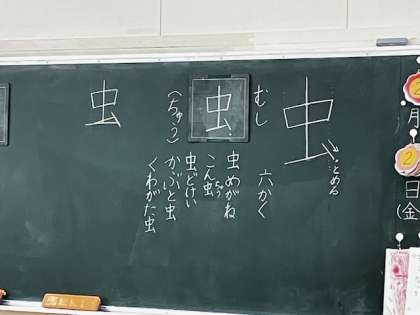 虫
とめる
むし
六かく
虫
虫めがね
こん虫
ちゅう
虫どけい
かぶと虫
くわがた虫
(ちゅう)
虫
月
日
(金)